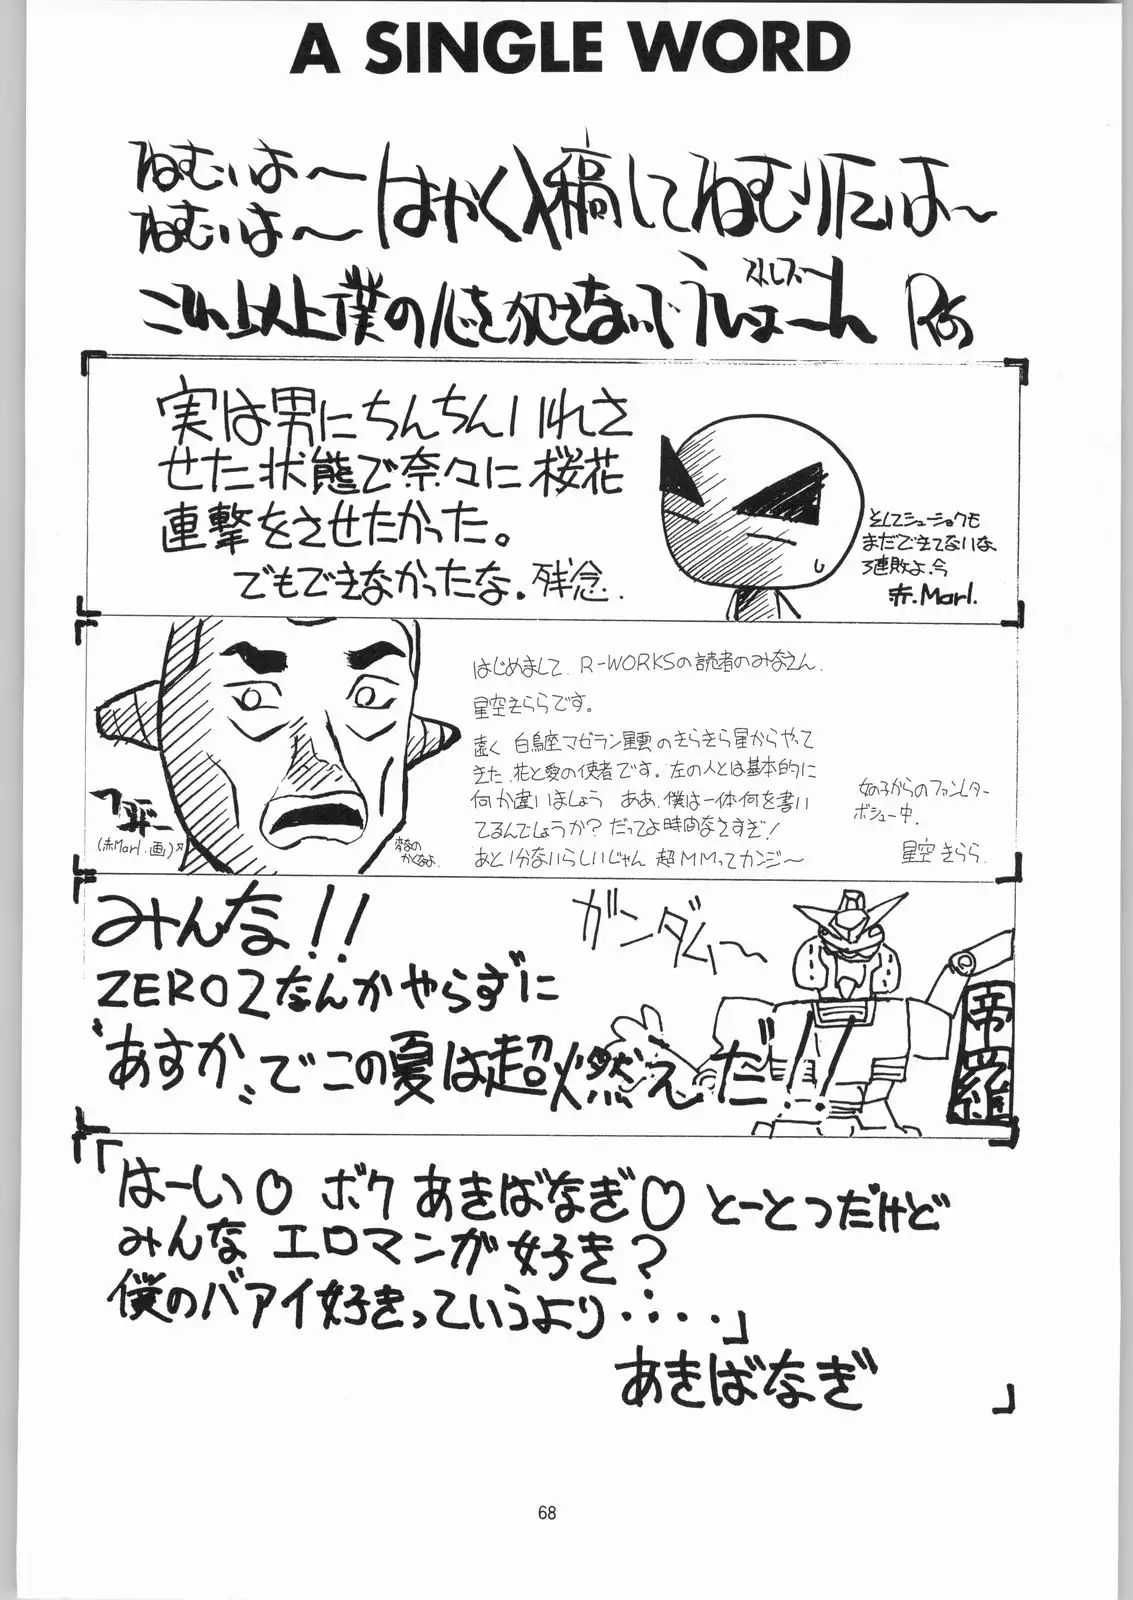 A SINGLE WORD
ねむいよ〜
ねむいよ〜
はやく入稿してねむりたいよ〜
これ以上僕の心を犯さないでうひょーん
実は男にちんちんいれさ
せた状態で奈々に桜花
連撃をさせたかった。
でもできなかったな。残念.
そしてシューショクも
まだできてないな
3連敗よ.今
赤.Marl.
はじめまして. R-WORKSの読者のみなさん.
星空きららです。
遠く 白鳥座マゼラン星雲のきらきら星からやって
きた、花と愛の使者です。左の人とは基本的に
何か違いましょう ああ、僕は一体何を書い
てるんでしょうか？だってよ時間なさすぎ！
あと1分ないらしいじゃん 超MMってカンジ〜
女の子からのファンレター
ボシュー中.
星空 きらら.
(赤Marl.画)
みんな!!
ZERO2なんかやらずに
"あすか"でこの夏は超燃えだ!!
ガンダム〜
帝羅
「はーい♡ ボク あきばなぎ♡ とーとつだけど
みんな エロマンガ好き？
僕のバアイ好きっていうより・・・・」
あきばなぎ
68